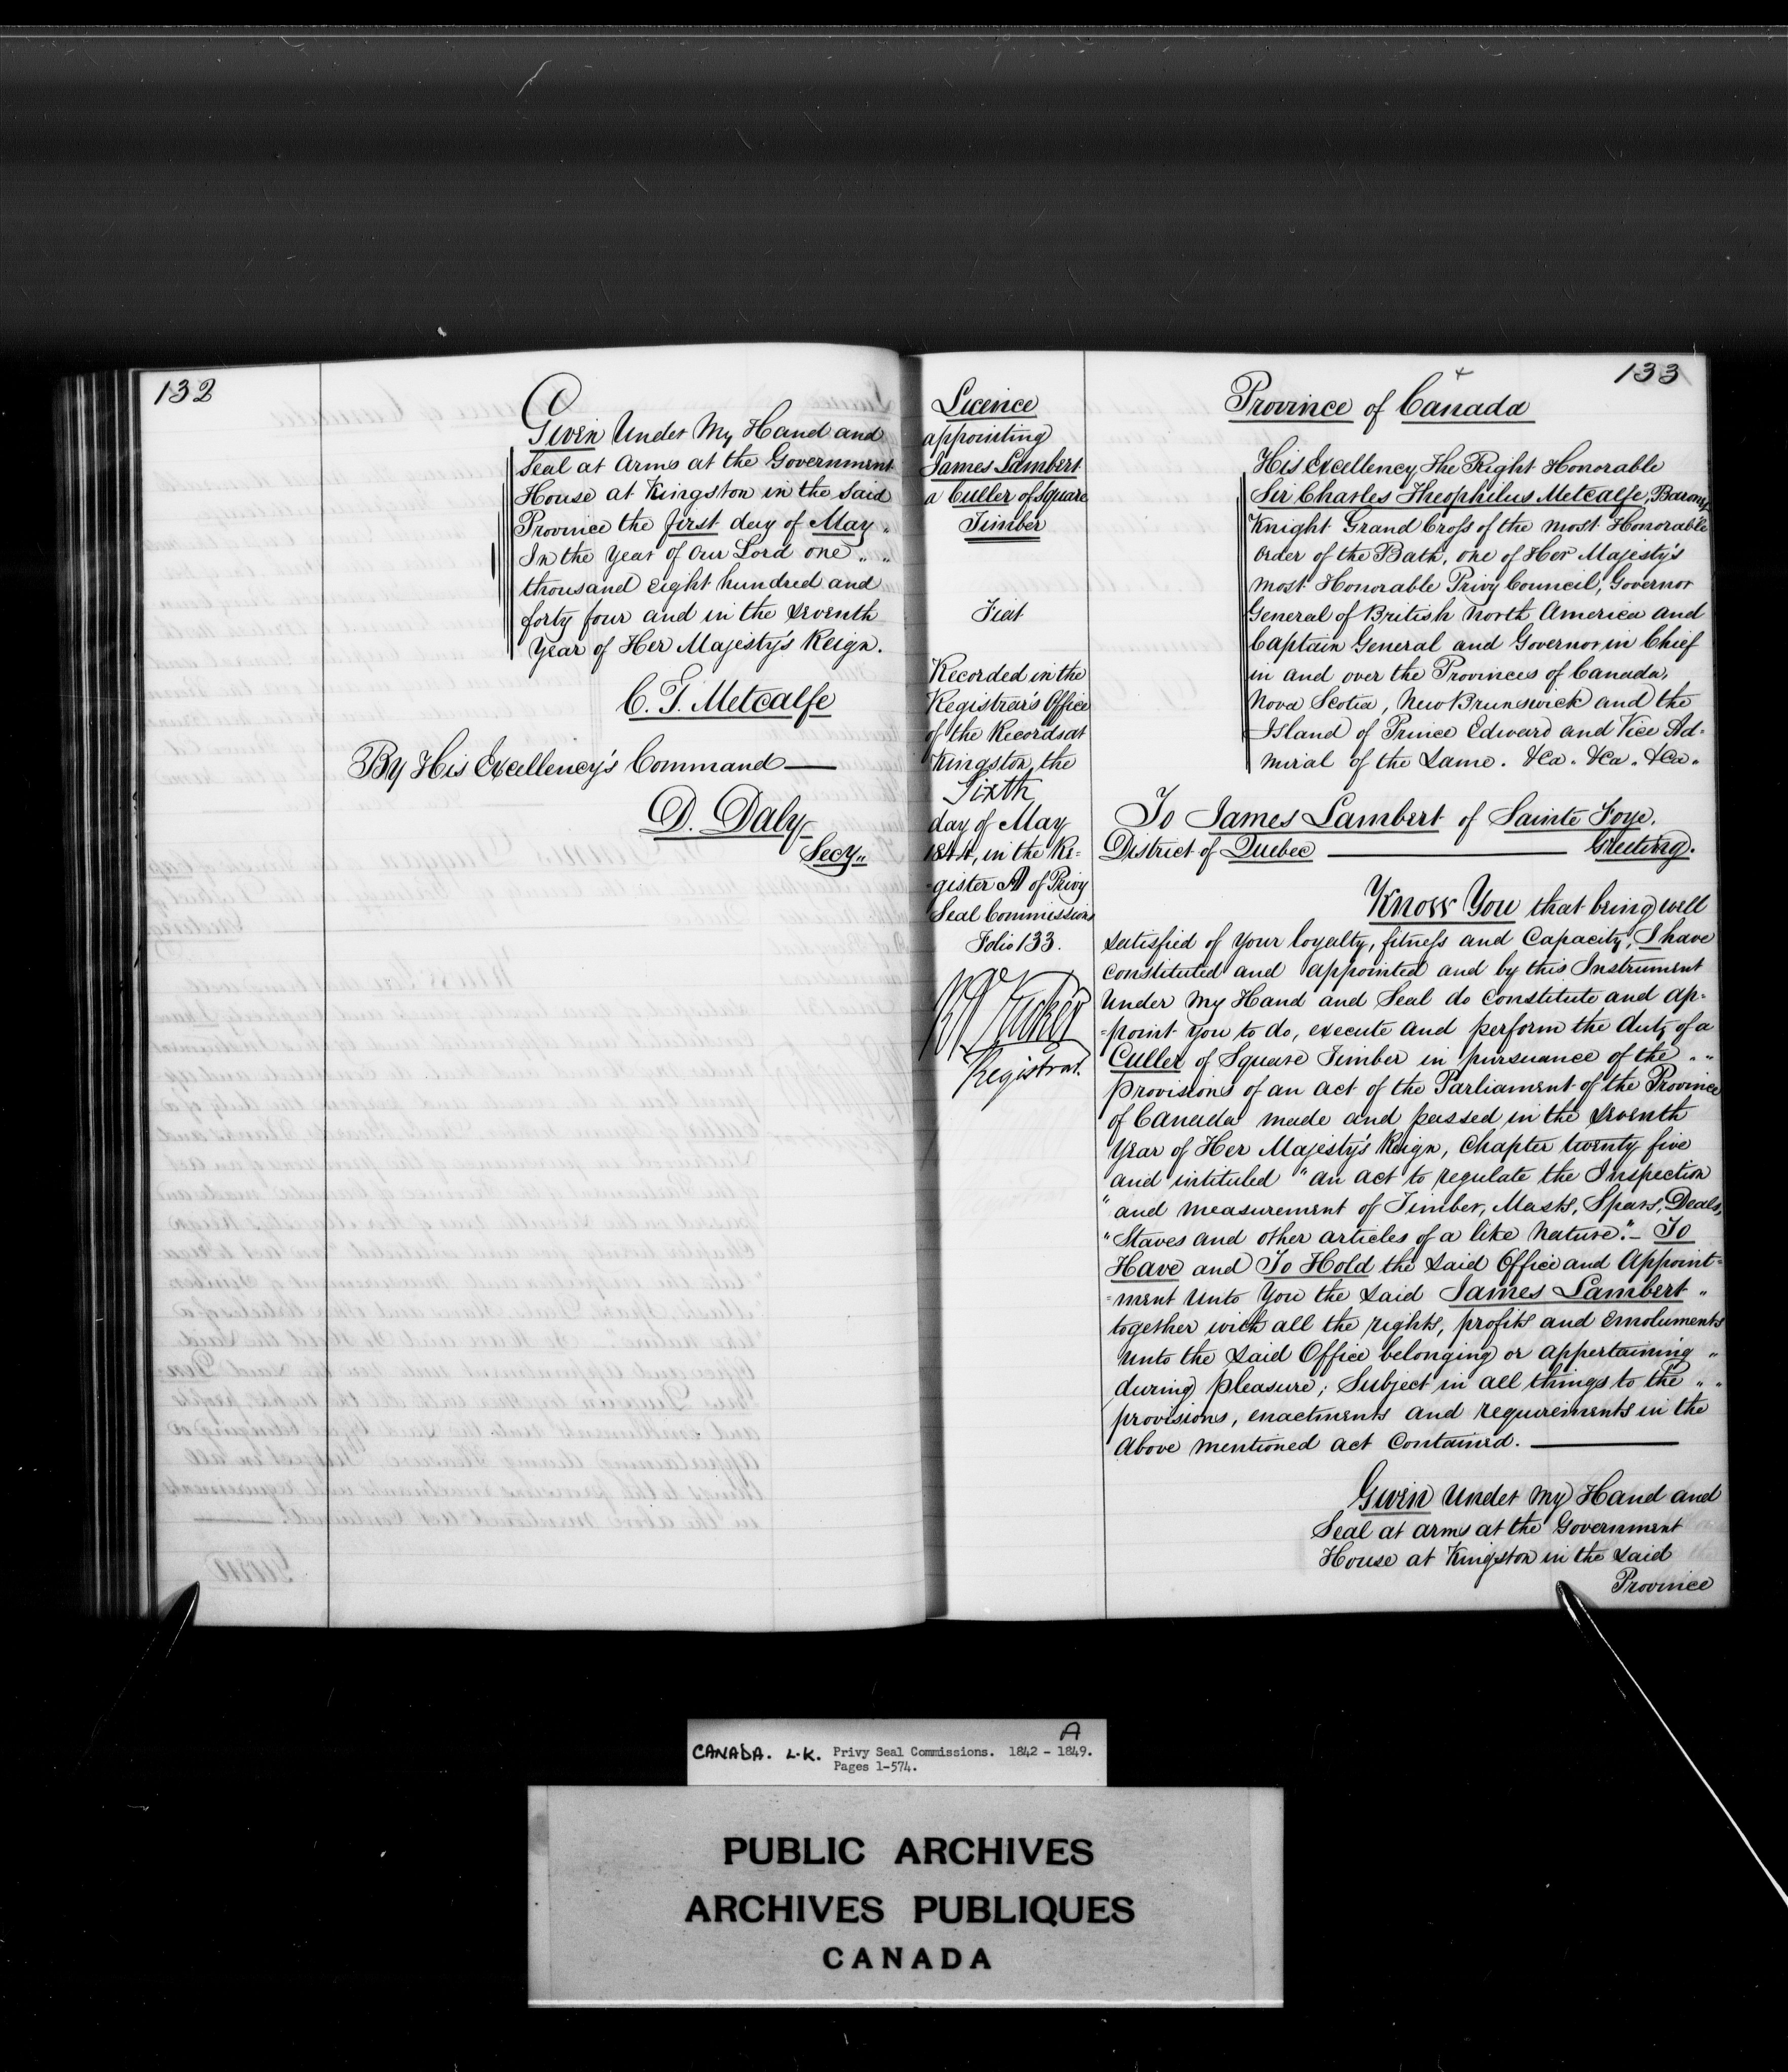 132
Given Under My Hand and
Seal at Arms at the Government
House at Kingston in the Said
Province the first day of May "
In the year of Our Lord one " "
thousand eight hundred and
forty four and in the Seventh
Year of Her Majesty's Reign.
C. T. Metcalfe
By His Excellency's Command —
D. Daly
Secy "
Licence
appointing
James Lambert
a Culler of Square
Timber
Fiat
Recorded in the
Registrar's Office
of the Records at
Kingston, the
Sixth
day of May
1844, in the Re-
gister A of Privy
Seal Commissions
Folio 133.
Registrar.
133
Province of Canada
His Excellency The Right Honorable
Sir Charles Theophilus Metcalfe, Baronet,
Knight Grand Cross of the most Honorable
Order of the Bath, one of Her Majesty's
most Honorable Privy Council, Governor
General of British North America and
Captain General and Governor in Chief
in and over the Provinces of Canada,
Nova Scotia, New Brunswick and the
Island of Prince Edward and Vice Ad-
miral of the Same. &ca. &ca. &ca.
To James Lambert of Sainte Foye.
District of Quebec — Greeting.
Know You that being well
satisfied of your loyalty, fitness and Capacity, I have
constituted and appointed and by this Instrument
under my Hand and Seal do constitute and ap-
=point you to do, execute and perform the duty of a
Culler of Square Timber in pursuance of the " "
provisions of an act of the Parliament of the Province
of Canada made and passed in the Seventh
Year of Her Majesty's Reign, Chapter twenty five
and intituled "an act to regulate the Inspection
"and measurement of Timber, Masts, Spars, Deals,
"Staves and other articles of a like nature." – To
Have and To Hold the said Office and Appoint-
=ment Unto You the said James Lambert "
together with all the rights, profits and Emoluments
unto the said Office belonging or appertaining "
during pleasure; Subject in all things to the " "
provisions, enactments and requirements in the
above mentioned act contained. —
Given under my Hand and
Seal at arms at the Government
House at Kingston in the said
Province
A
CANADA. L.K. Privy Seal Commissions. 1842 - 1849.
Pages 1-574.
PUBLIC ARCHIVES
ARCHIVES PUBLIQUES
CANADA